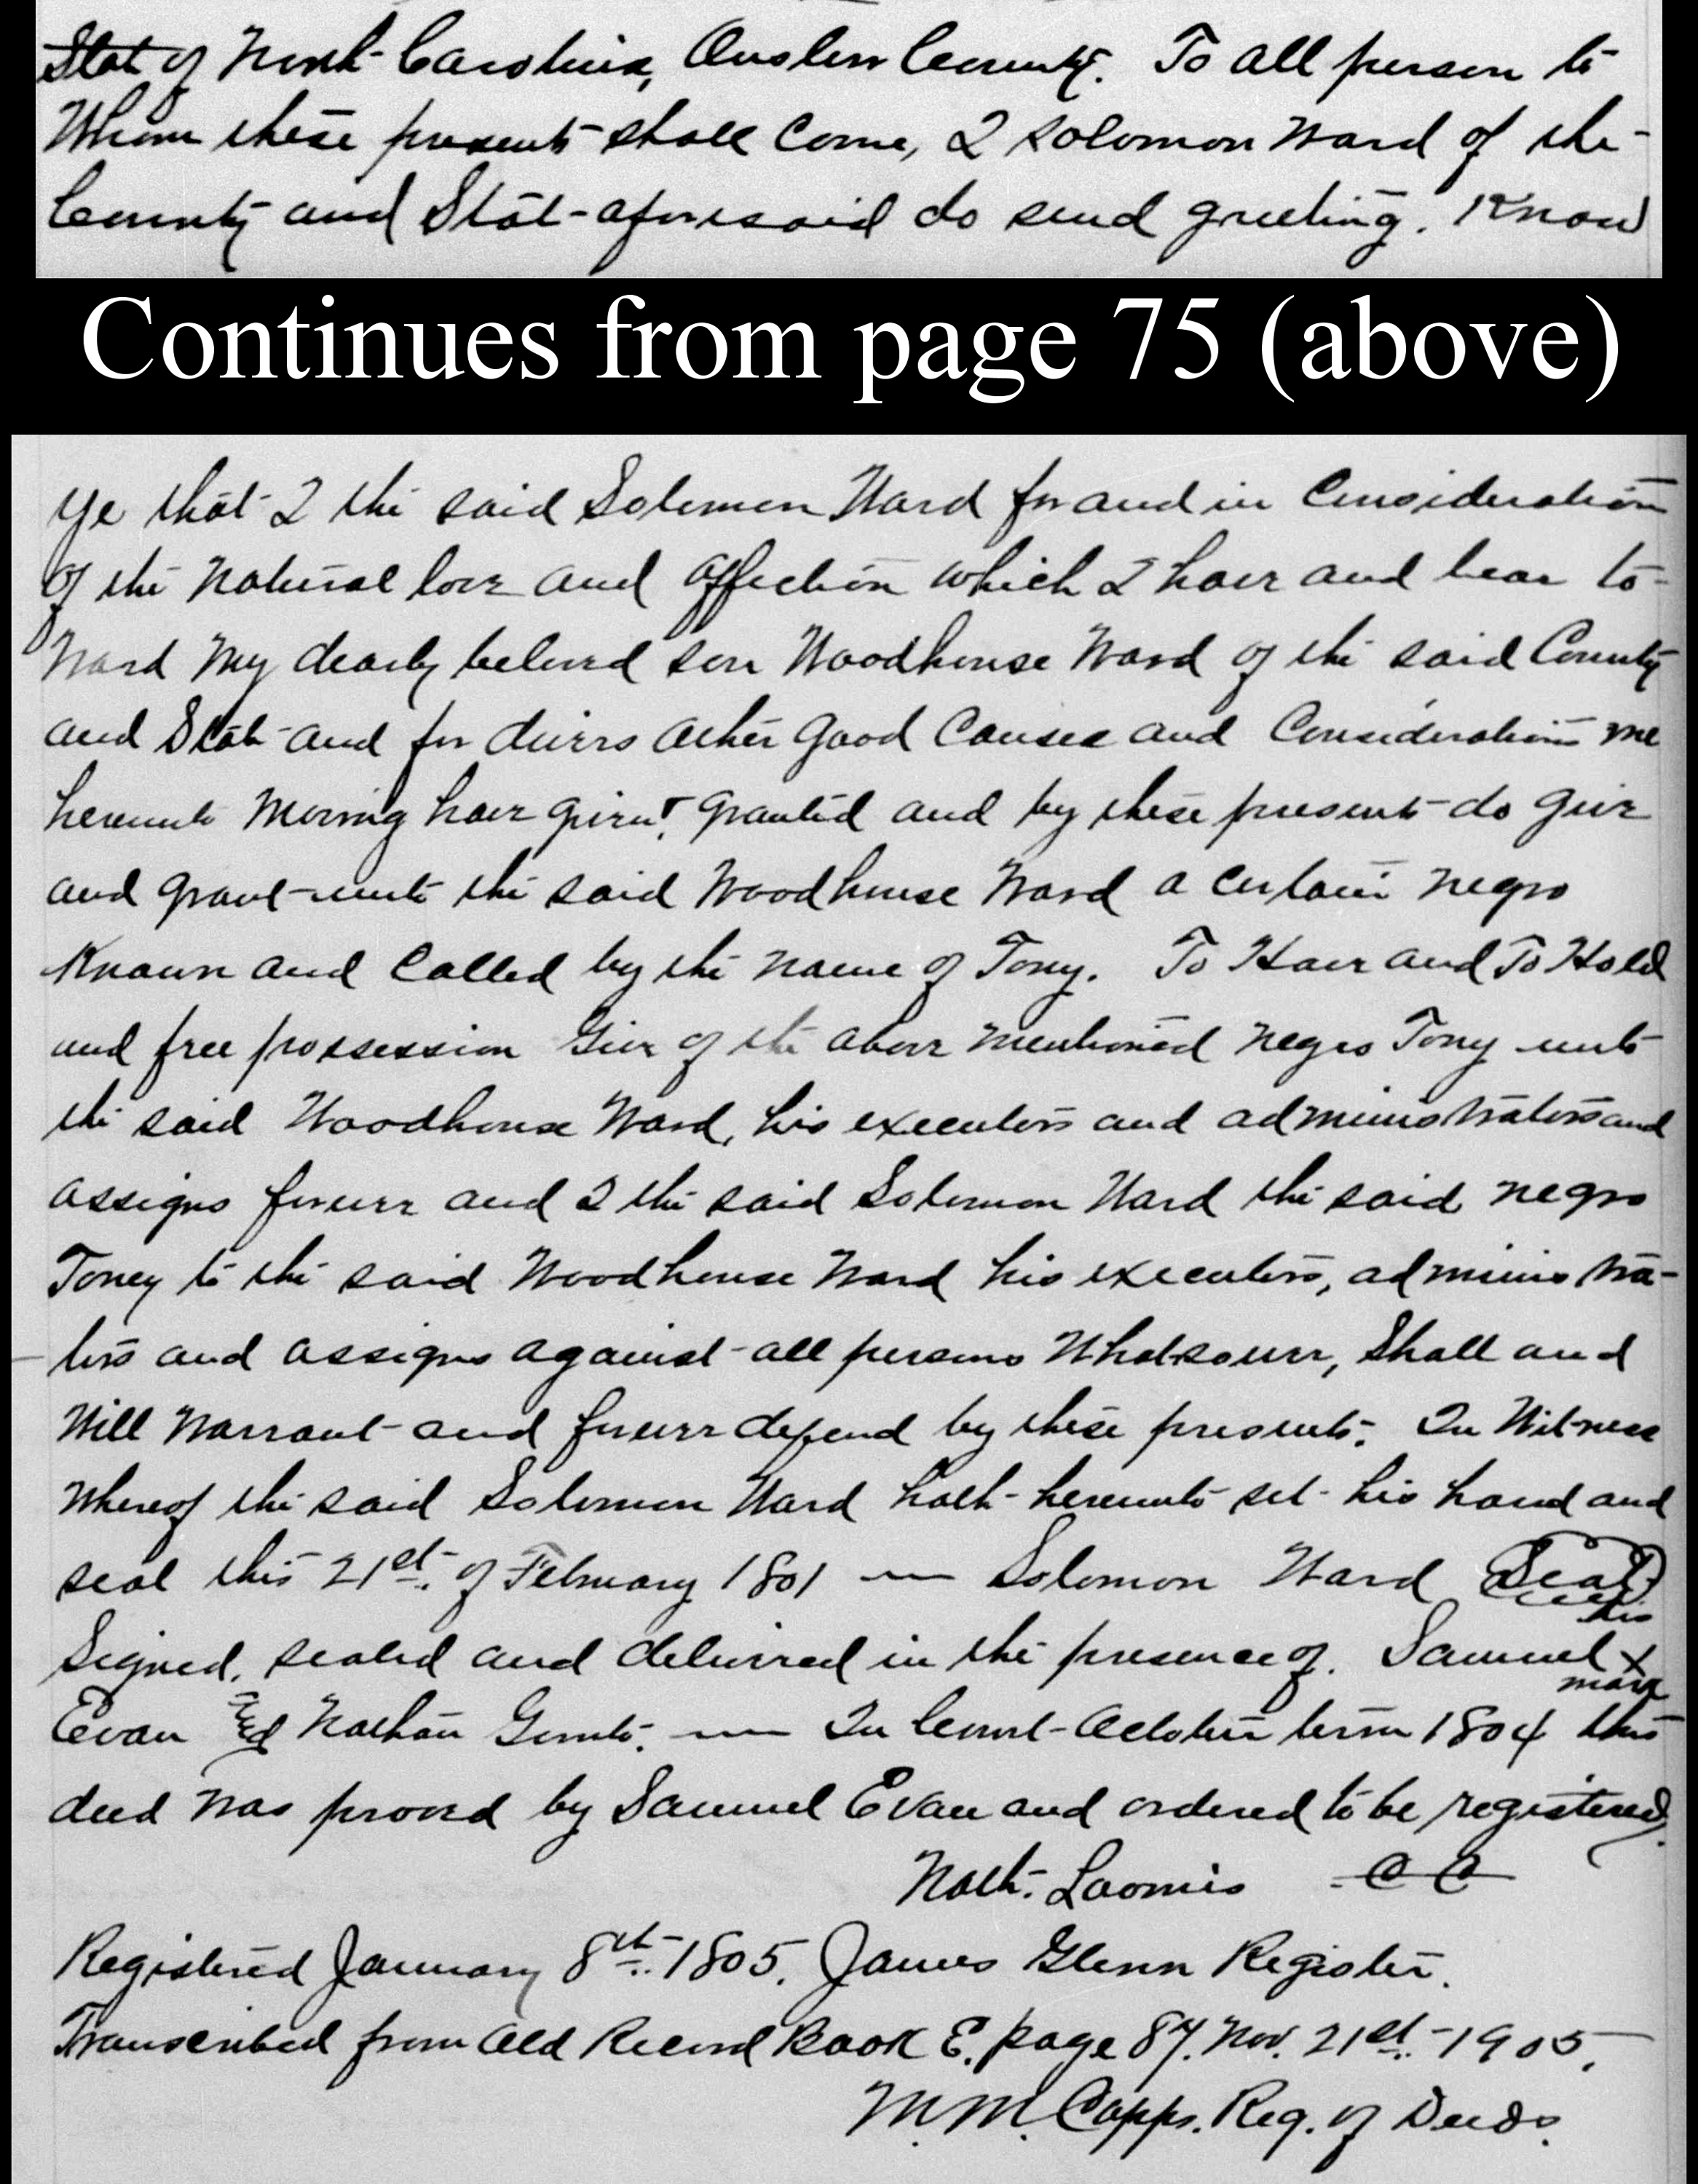 Stat of North Carolina, Onslow County. To all person to
Whom these presents shall Come, I Solomon Ward of the
County and State aforesaid do send greeting. Know
Continues from page 75 (above)
Ye that I the said Solomon Ward for and in Consideration
of the Natural love and affection which I have and bear to-
ward My dearly beloved son Woodhouse Ward of the said County
and State and for divers other good Causes and Considerations me
hereunto Moving have given, granted and by these presents do give
and grant unto the said Woodhouse Ward a certain negro
Known and Called by the name of Tony. To Have and To Hold
and free possession Give of the above mentioned negro Tony unto
the said Woodhouse Ward, his executors and administrators and
assigns forever and I the said Solomon Ward the said negro
Toney to the said Woodhouse Ward his executors, administra-
tors and assigns against all persons Whatsoever, Shall and
Will Warrant and forever defend by these presents. In Witness
Whereof the said Solomon Ward hath hereunto set his hand and
seal this 21st. of February 1801 — Solomon Ward Seal
his
Signed, sealed and delivered in the presence of. Samuel X
mark
Evan Nathan — In Court October term 1804 this
deed was proved by Samuel Evan and ordered to be registered.
Nath. Loomis C C
Registered January 8th. 1805. James Glenn Register.
Transcribed from Old Record Book E. page 87. Nov. 21st. 1905.
M. M. Capps. Reg. of Deeds.